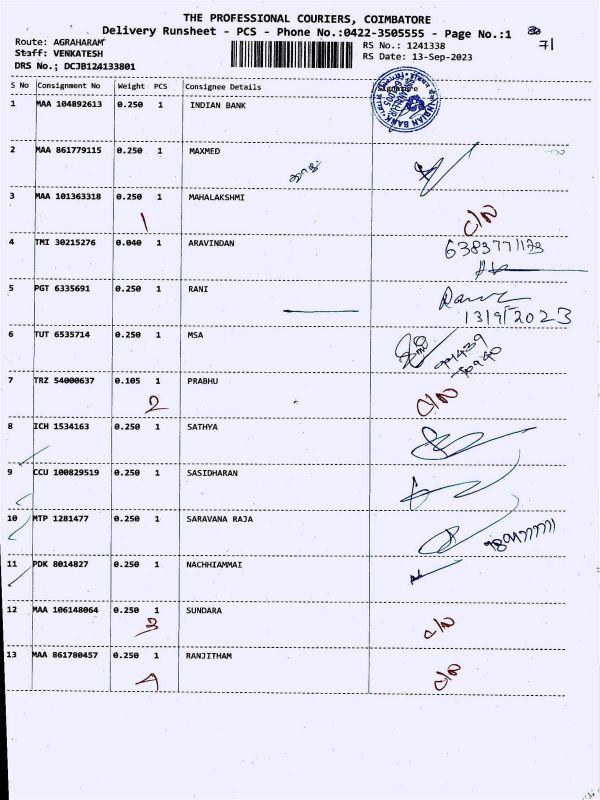 THE PROFESSIONAL COURIERS, COIMBATORE
Delivery Runsheet - PCS - Phone No.:0422-3505555 - Page No.:1
71
Route: AGRAHARAM
RS No.: 1241338
Staff: VENKATESH
RS Date: 13-Sep-2023
DRS No.; DCJB124133801
S No Consignment No Weight PCS Consignee Details Signature
1 MAA 104892613 0.250 1 INDIAN BANK
INDIAN BANK
2 MAA 861779115 0.250 1 MAXMED
3 MAA 101363318 0.250 1 MAHALAKSHMI
1 C/N
4 TMI 30215276 0.040 1 ARAVINDAN
5 PGT 6335691 0.250 1 RANI
13/9/2023
6 TUT 6535714 0.250 1 MSA
7 TRZ 54000637 0.105 1 PRABHU
2 C/N
8 ICH 1534163 0.250 1 SATHYA
9 CCU 100829519 0.250 1 SASIDHARAN
10 MTP 1281477 0.250 1 SARAVANA RAJA
11 PDK 8014827 0.250 1 NACHHIAMMAI
12 MAA 106148064 0.250 1 SUNDARA
3 C/N
13 MAA 861780457 0.250 1 RANJITHAM
4 C/N